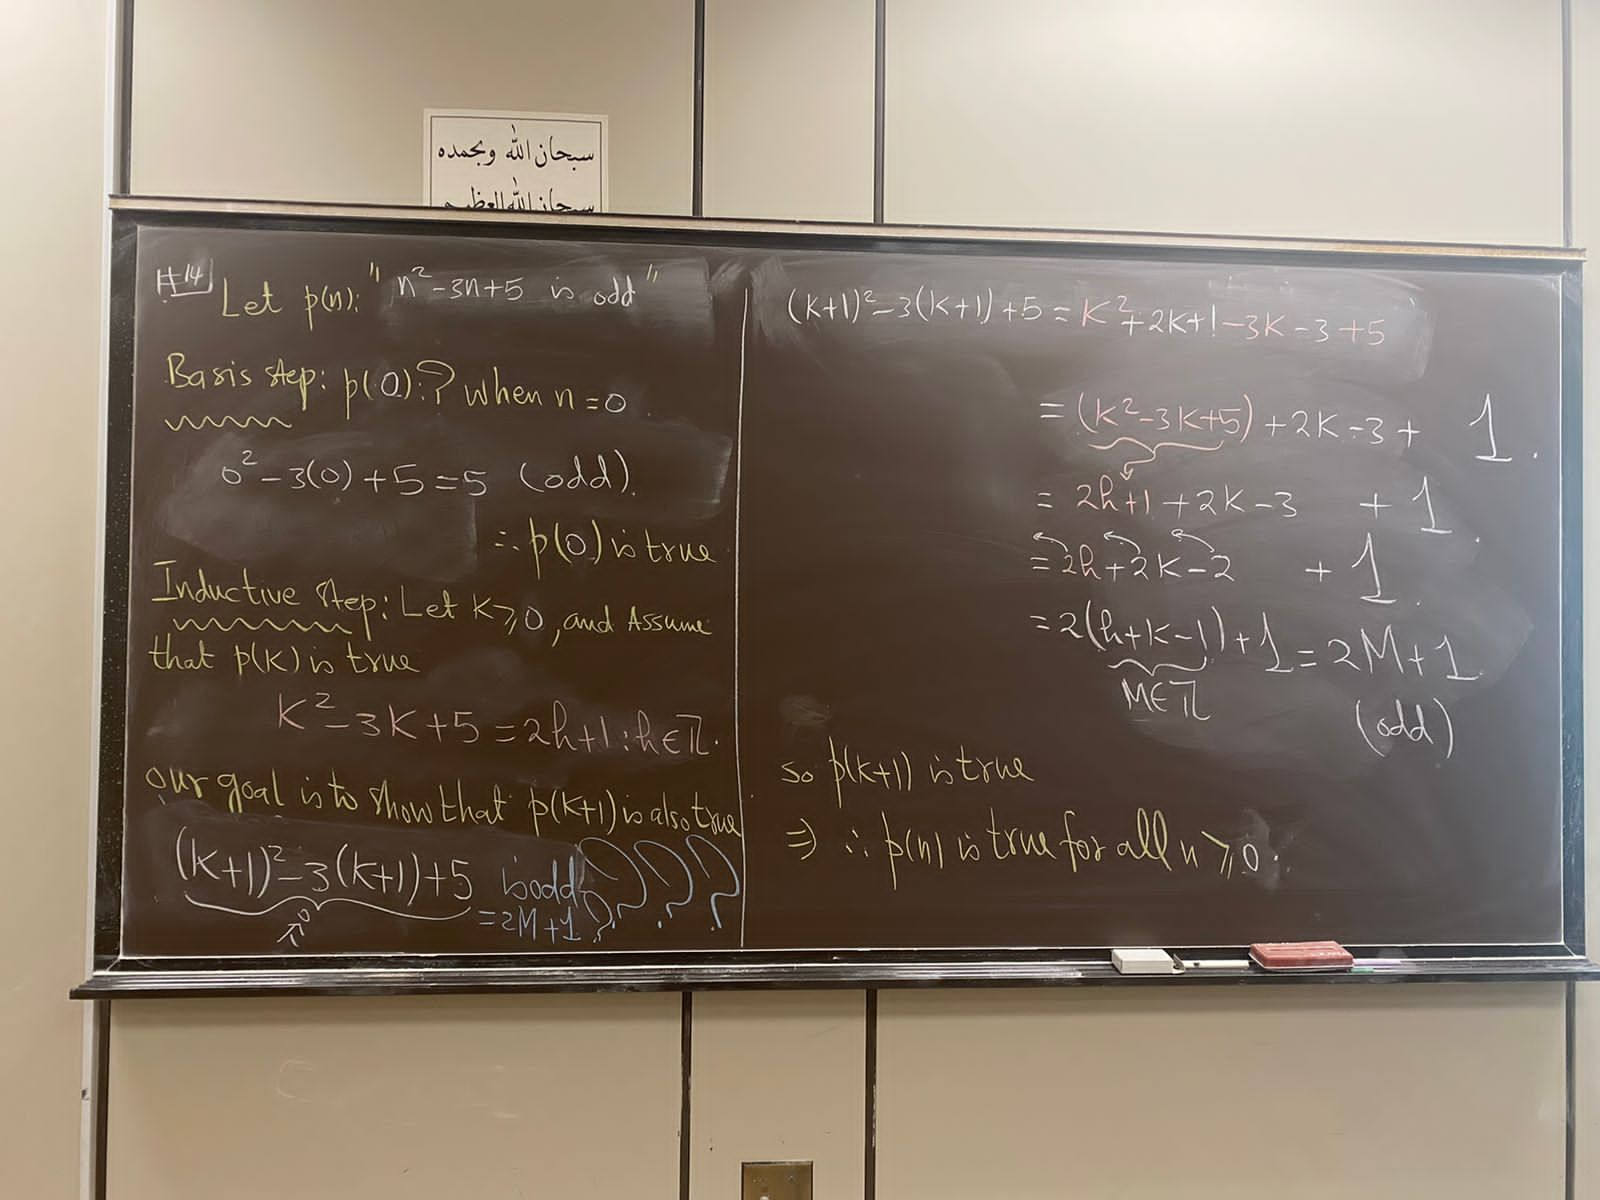 سبحان الله وبحمده
سبحان الله العظيم
#14
Let p(n): "n²-3n+5 is odd"
Basis step: p(0):? when n=0.
0²-3(0)+5=5 (odd).
∴ p(0) is true
Inductive Step: Let K≥0, and Assume
that p(K) is true
K²-3K+5=2h+1:h∈ℤ.
our goal is to show that p(K+1) is also true
(K+1)²-3(K+1)+5 is odd ????
=2M+1
(K+1)²-3(K+1)+5=K²+2K+1-3K-3+5
=(K²-3K+5)+2K-3+1.
=2h+1+2K-3+1.
=2h+2K-2+1.
=2(h+K-1)+1=2M+1.
M∈ℤ
(odd)
so p(K+1) is true
⇒ ∴ p(n) is true for all n≥0.